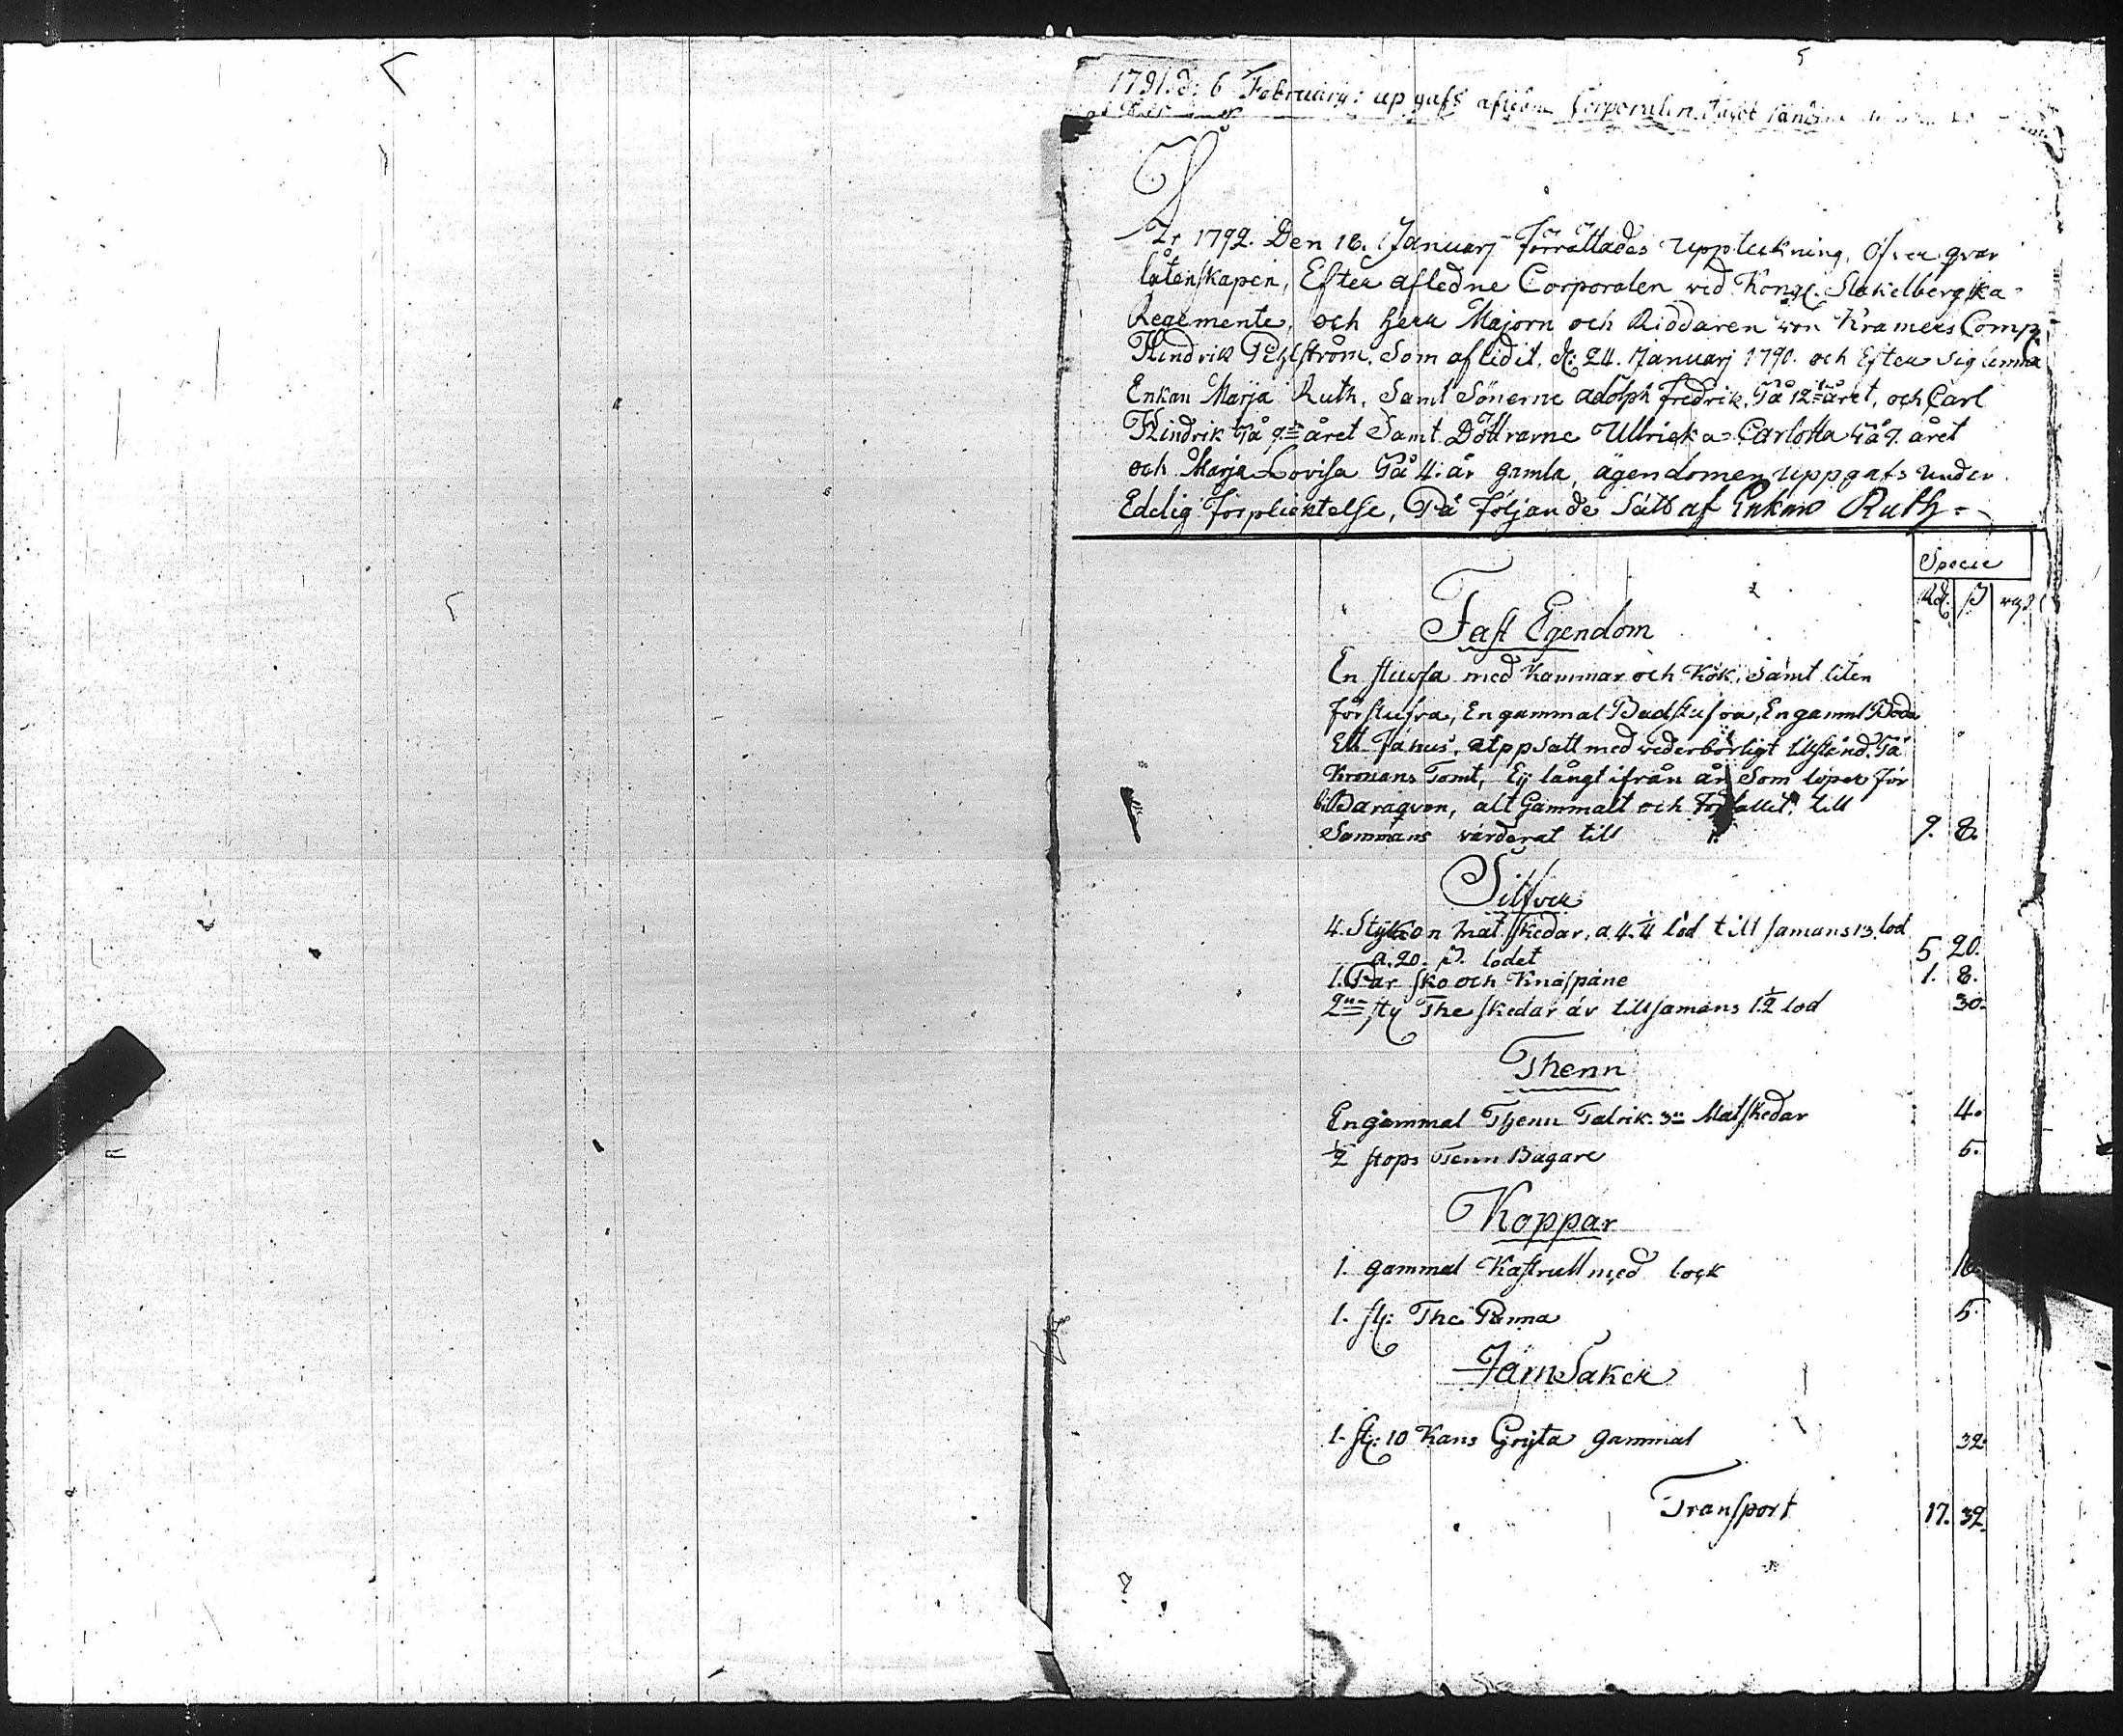 5
1791. d: 6 February: up gafs afledne Corporalen
År 1792. Den 16. Januarj förrättades Uppteckning, öfver qvar
låtenskapen, Efter afledne Corporalen ved Kongl. Stakelbergska
Regemente, och herr Majorn och Riddaren von Kramers Comp.
Hindrik Pehlström, Som aflidit, d: 24. Januarj 1790. och Efter sig lemna
Enkan Marja Ruth, Samt Sönerne Adolph Fredrik, På 12te året, och Carl
Hindrik På 9de året Samt Döttrarne Ullricka Carlotta På 7. året
och Marja Lovisa På 4. år gamla, ägendomen uppgafs under
Edelig förplicktelse, På följande Sätt af Enkan Ruth
Specie
Rd. ß rs
Fast Egendom
En stufva med Kammar och Kök, Samt liten
förstufva, En gammal Badstufva, En gamml Boda
Ett Fähus, uppsatt med vederbörligt tillstånd. På
Kronans Tomt, Eij långt ifrån ån Som löper för
bi Baraqven, alt Gammalt och Förfallit. till
Sammans värderat till 9. 8.
Silfver
4. Stycken Mat skedar, a 4. ¼ lod till samans 13. lod
a. 20. ß. lodet 5 20.
1. Par sko och Knäspäne 1. 8.
2ne sty The skedar äv tillsamans 1½ lod 30.
Thenn
En gammal Thenn Talrik. 3ne Matskedar 4.
½ stops Tenn Bägare 5.
Koppar
1. gammal Kastrull med lock 16
1. st: The Panna 5.
JärnSaker
1. st: 10 Kans Gryta gammal 32.
Transport 17. 32.